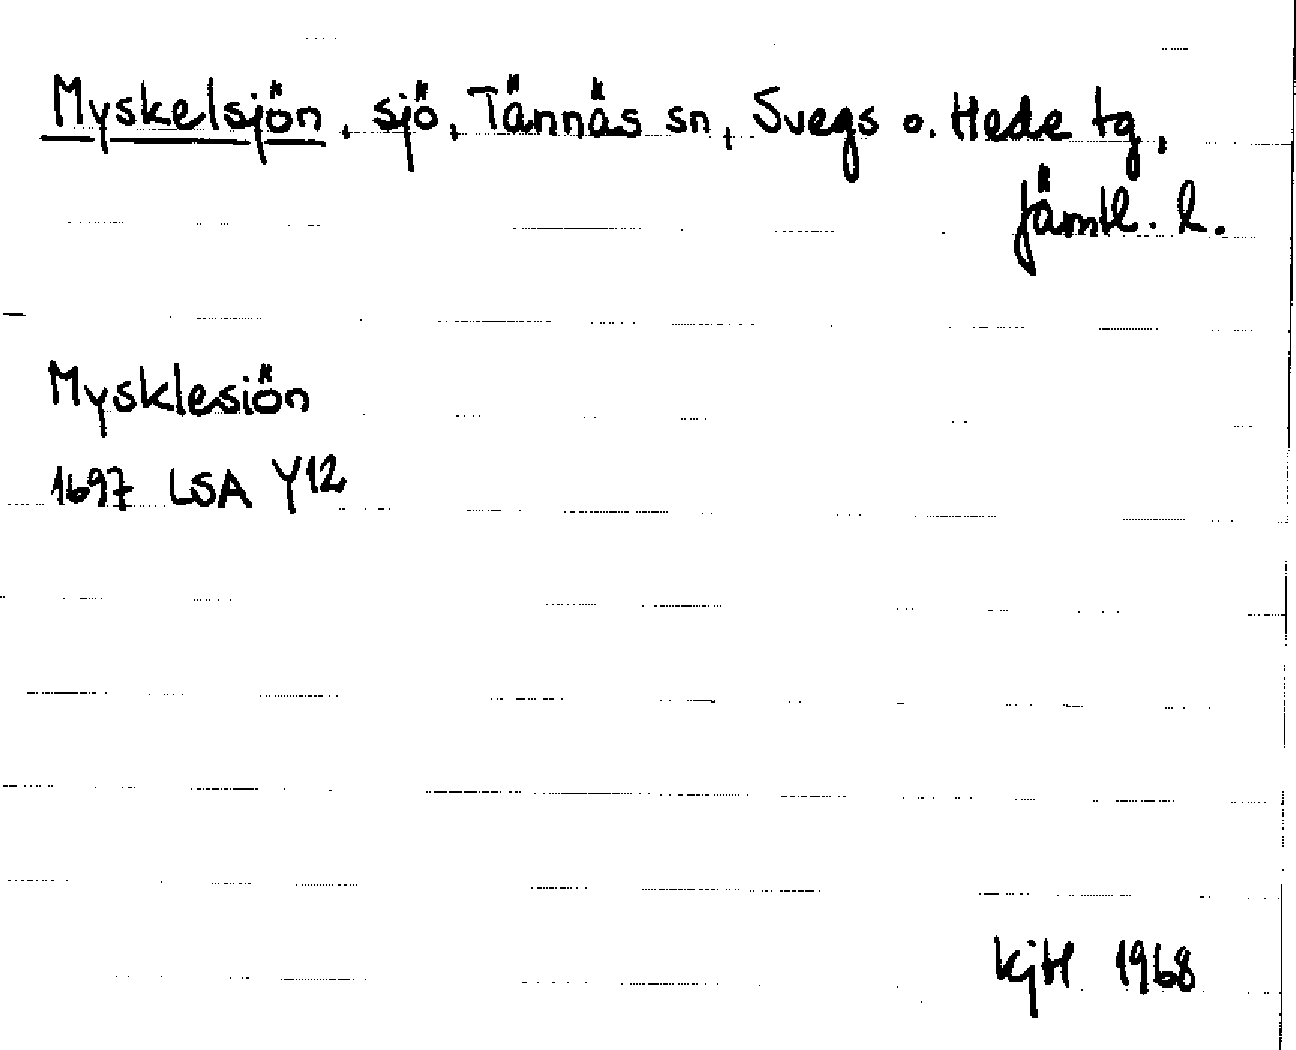 Myskelsjön, sjö, Tännäs sn, Svegs o. Hede tg,
Jämtl. l.
Mysklesiön
1697 LSA Y12
KjH 1968